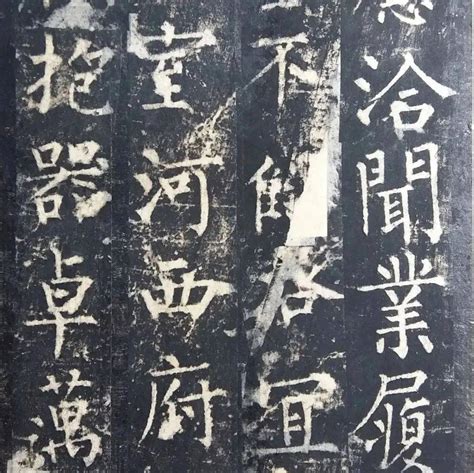 洽聞業履
不冝
室河西府
抱器卓